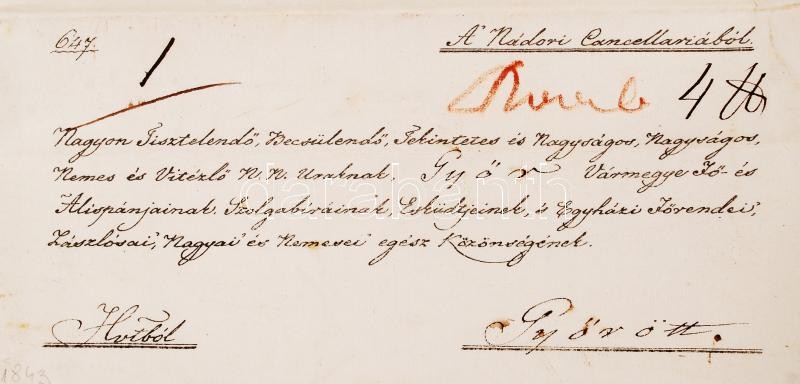 647.
A' Nádori Cancellariából.
1
4
Nagyon Tisztelendő, Becsülendő, Tekintetes és Nagyságos, Nagyságos,
Nemes és Vitézlő N. N. Uraknak, Győr Vármegye Fő- és
Alispánjainak, Szolgabíráinak, Esküdtjeinek, és Egyházi Főrendei',
Zászlósai', Nagyai' és Nemesei' egész Közönségének.
darabanth
Hvtból
Győrött.
1843